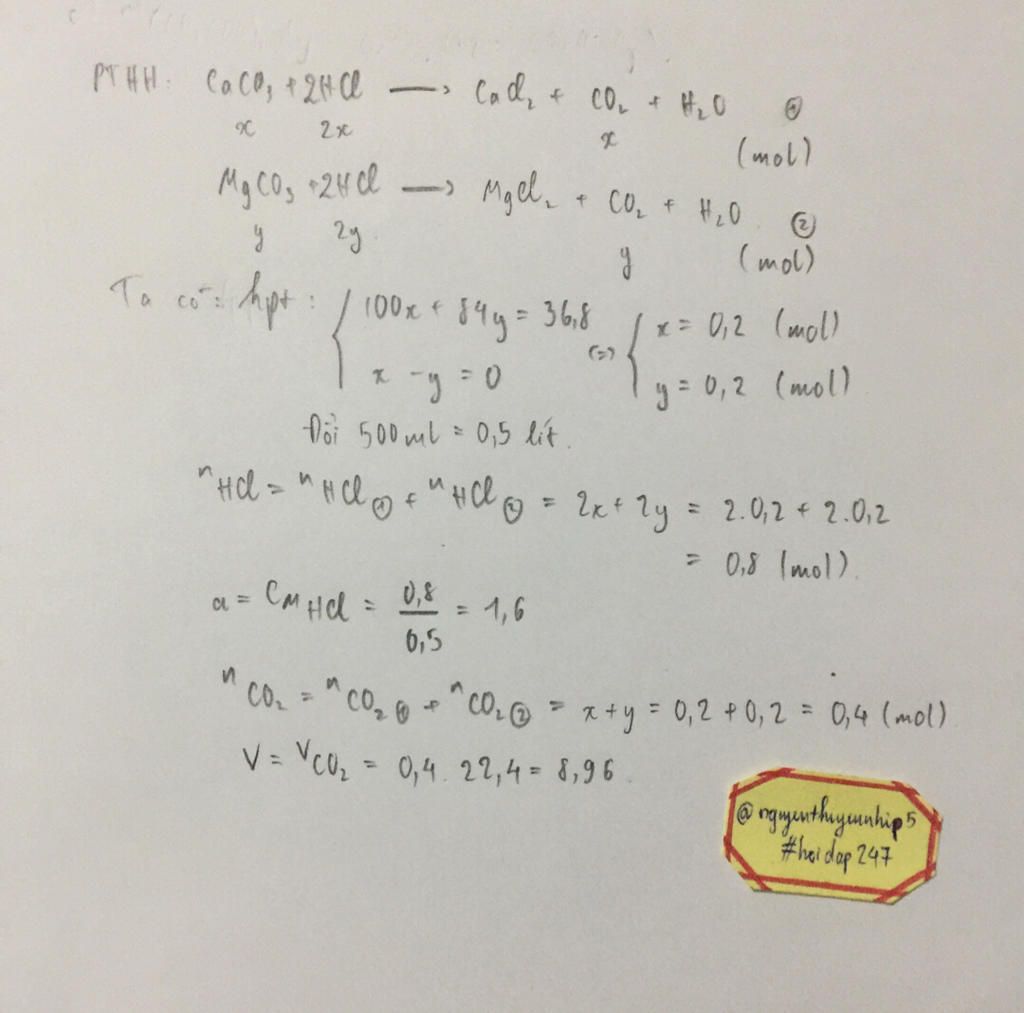 PTHH: CaCO₃ + 2HCl → CaCl₂ + CO₂ + H₂O ①
x 2x x (mol)
MgCO₃ + 2HCl → MgCl₂ + CO₂ + H₂O ②
y 2y y (mol)
Ta có: hpt: { 100x + 84y = 36,8 (=) { x = 0,2 (mol)
x - y = 0 y = 0,2 (mol)
Đổi 500ml = 0,5 lít.
nHCl = nHCl① + nHCl② = 2x + 2y = 2.0,2 + 2.0,2
= 0,8 (mol).
a = CM HCl = 0,8/0,5 = 1,6
nCO₂ = nCO₂① + nCO₂② = x + y = 0,2 + 0,2 = 0,4 (mol)
V = VCO₂ = 0,4. 22,4 = 8,96
#hoidap247